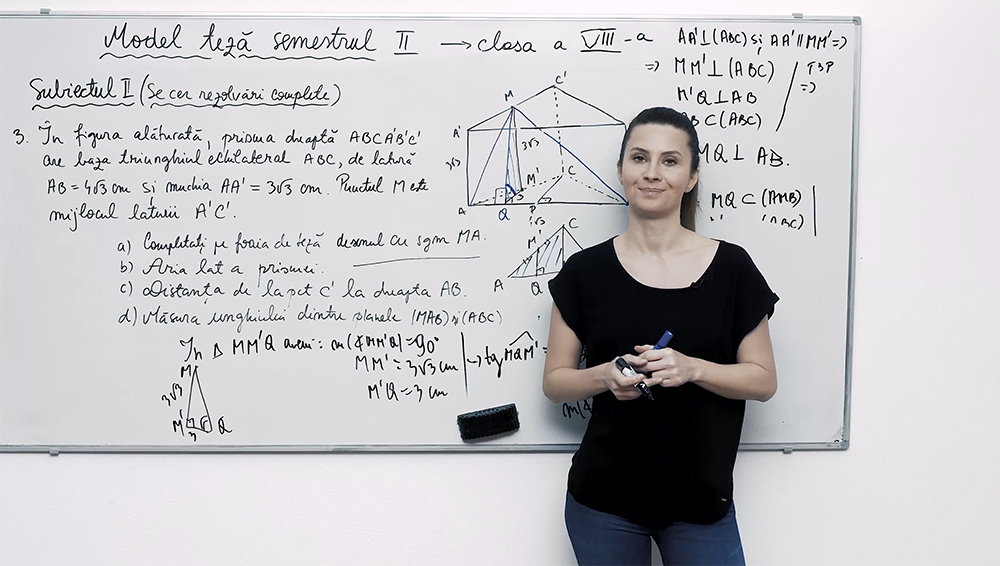 Model teză semestrul II → clasa a VIII-a
Subiectul II (Se cer rezolvări complete)
3. În figura alăturată, prisma dreaptă ABCA'B'C'
are baza triunghiul echilateral ABC, de latură
AB = 4√3 cm și muchia AA' = 3√3 cm. Punctul M este
mijlocul laturii A'C'.
a) Completați pe foaia de teză desenul cu sgm MA.
b) Aria lat a prismei.
c) Distanța de la pct C' la dreapta AB.
d) Măsura unghiului dintre planele (MAB) și (ABC)
În Δ MM'Q avem: m(∢MM'Q) = 90°
MM' = 3√3 cm
M'Q = 3 cm
→ tg MQM' =
M
3√3
M'
3
Q
C'
M
A'
3√3
3√3
M'
C
A
Q
P
C
M'
A
Q
AA' ⊥ (ABC) și AA' ∥ MM' =>
=> MM' ⊥ (ABC)
M'Q ⊥ AB
AB ⊂ (ABC)
T3P
=>
MQ ⊥ AB.
MQ ⊂ (AMB)
(ABC)
m(∢